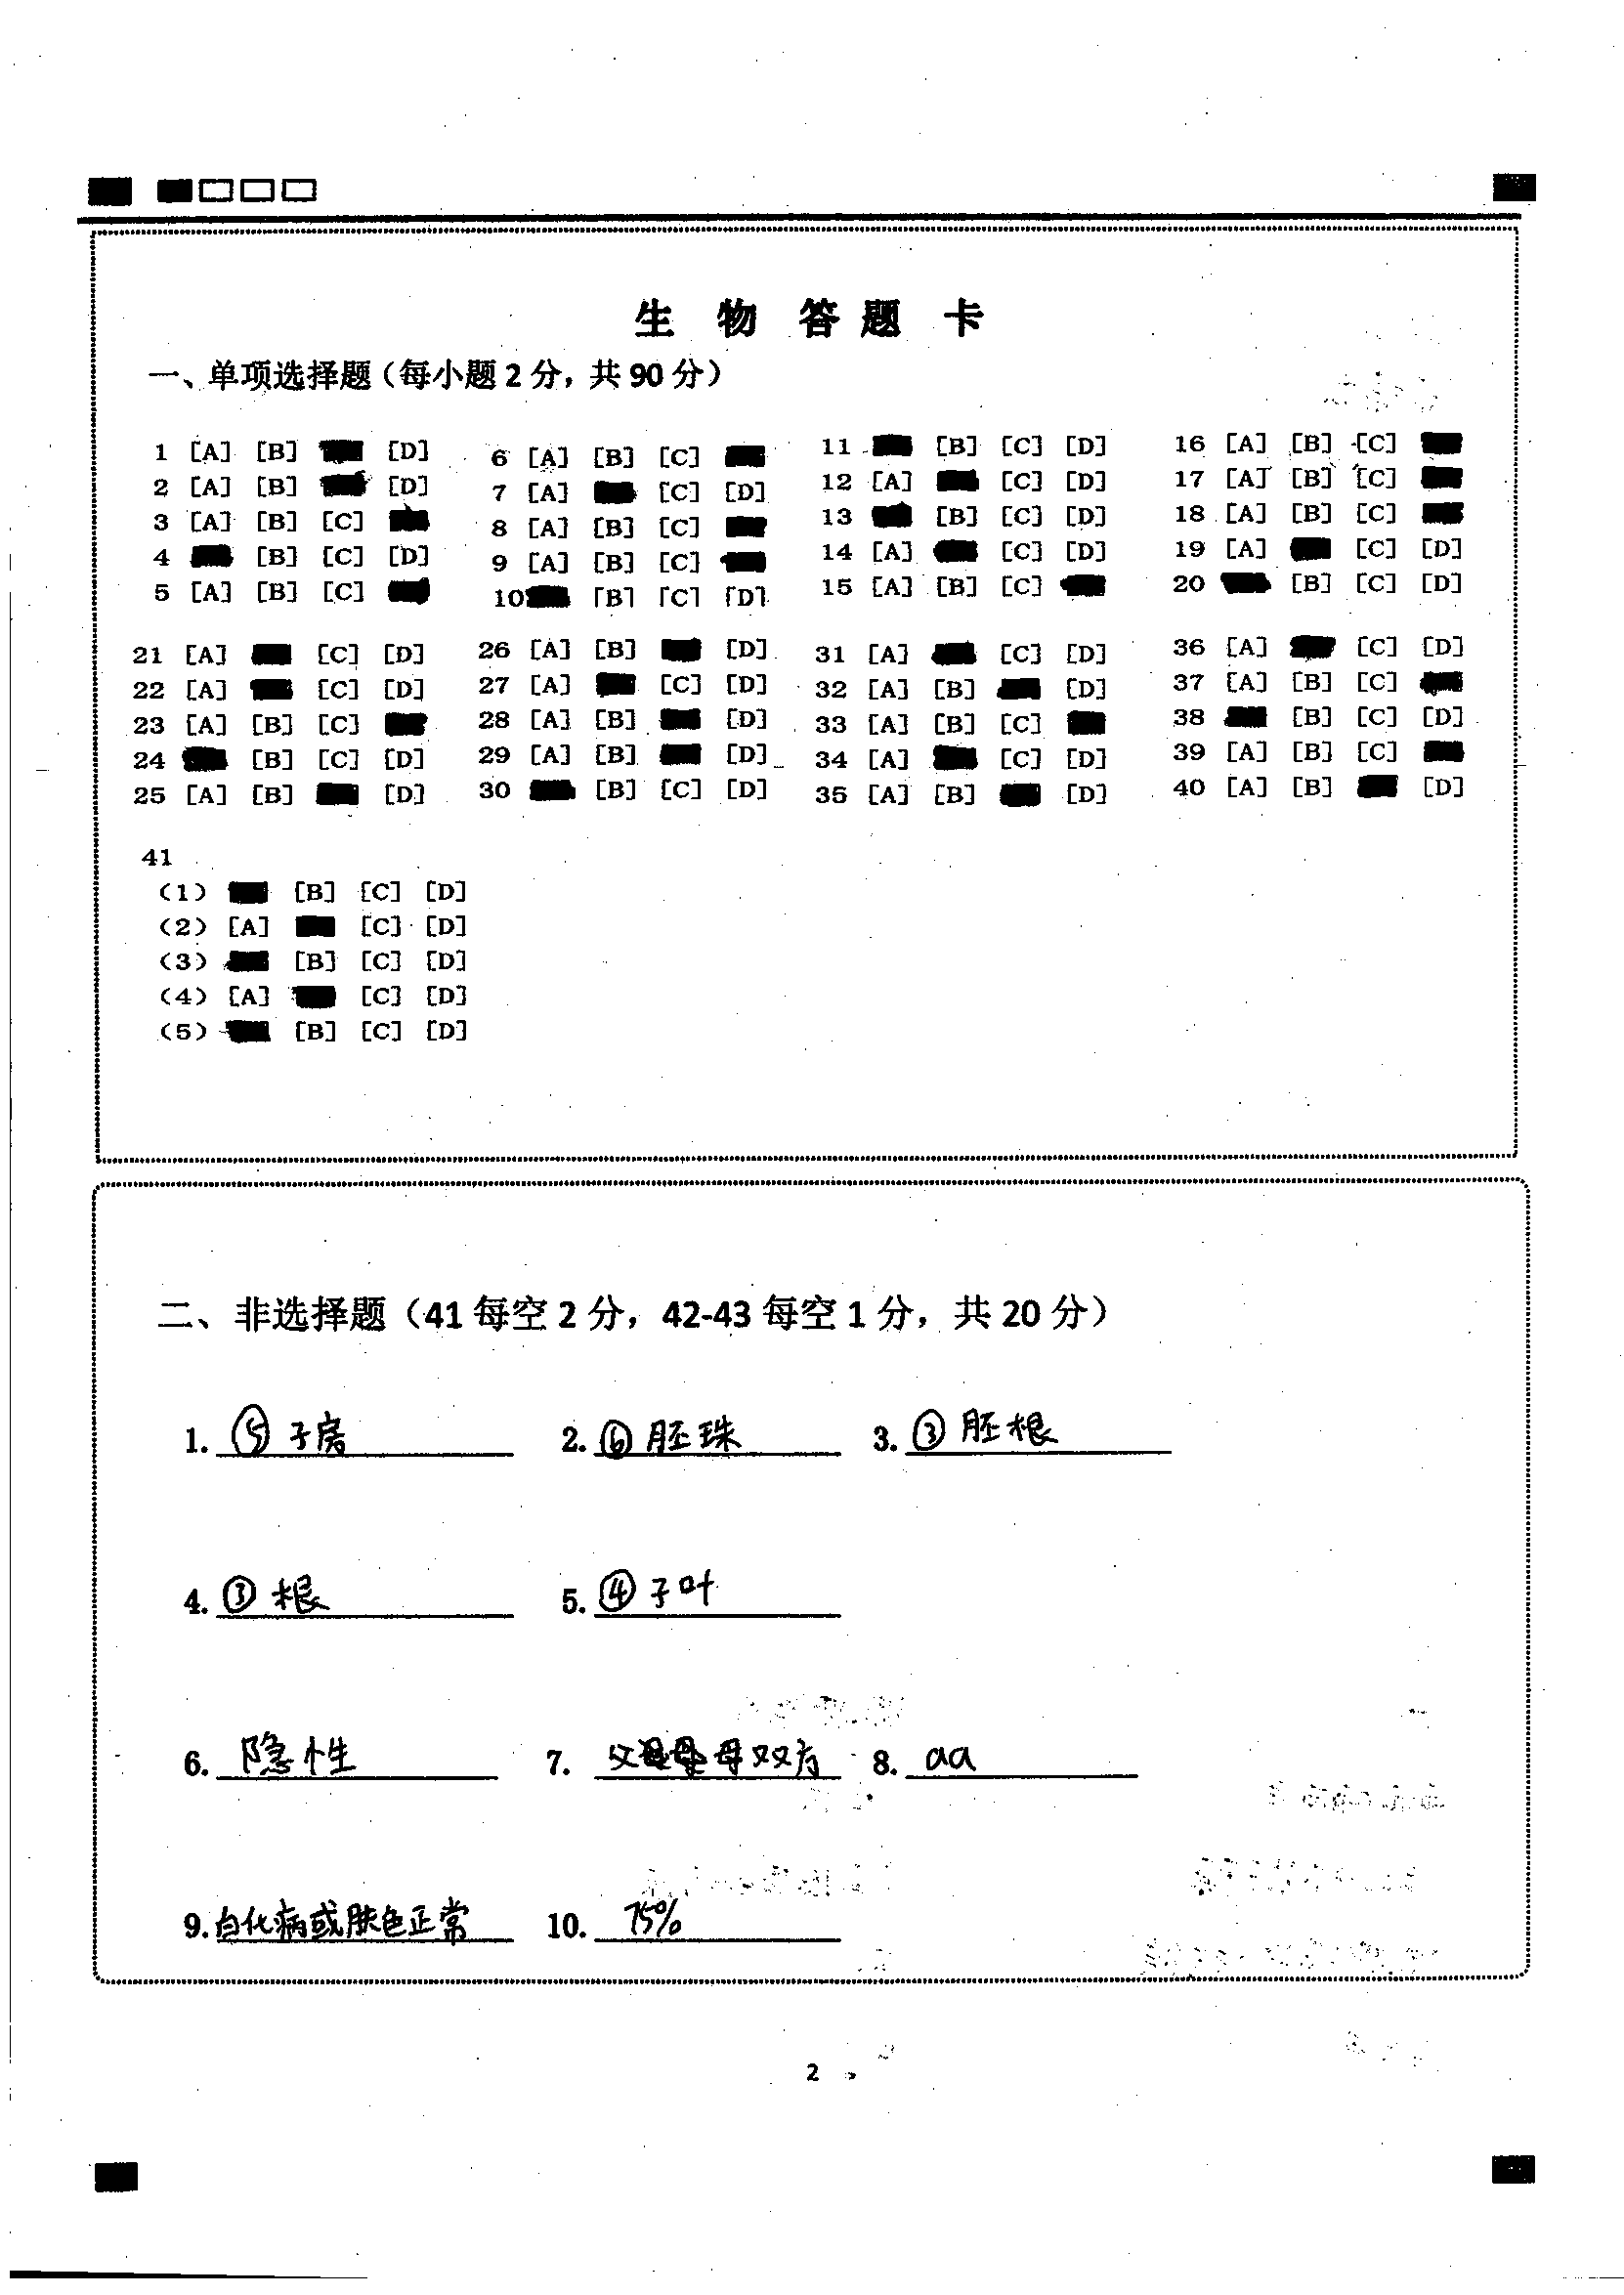 生物答题卡
一、单项选择题（每小题2分，共90分）
1 [A] [B] [D]
2 [A] [B] [D]
3 [A] [B] [C]
4 [B] [C] [D]
5 [A] [B] [C]
6 [A] [B] [C]
7 [A] [C] [D]
8 [A] [B] [C]
9 [A] [B] [C]
10 [B] [C] [D]
11 [B] [C] [D]
12 [A] [C] [D]
13 [B] [C] [D]
14 [A] [C] [D]
15 [A] [B] [C]
16 [A] [B] [C]
17 [A] [B] [C]
18 [A] [B] [C]
19 [A] [C] [D]
20 [B] [C] [D]
21 [A] [C] [D]
22 [A] [C] [D]
23 [A] [B] [C]
24 [B] [C] [D]
25 [A] [B] [D]
26 [A] [B] [D]
27 [A] [C] [D]
28 [A] [B] [D]
29 [A] [B] [D]
30 [B] [C] [D]
31 [A] [C] [D]
32 [A] [B] [D]
33 [A] [B] [C]
34 [A] [C] [D]
35 [A] [B] [D]
36 [A] [C] [D]
37 [A] [B] [C]
38 [B] [C] [D]
39 [A] [B] [C]
40 [A] [B] [D]
41
(1) [B] [C] [D]
(2) [A] [C] [D]
(3) [B] [C] [D]
(4) [A] [C] [D]
(5) [B] [C] [D]
二、非选择题（41每空2分，42-43每空1分，共20分）
1. ⑤子房 2. ⑥胚珠 3. ③胚根
4. ③根 5. ④子叶
6. 隐性 7. 父母双方 8. aa
9. 白化病或肤色正常 10. 75%
2